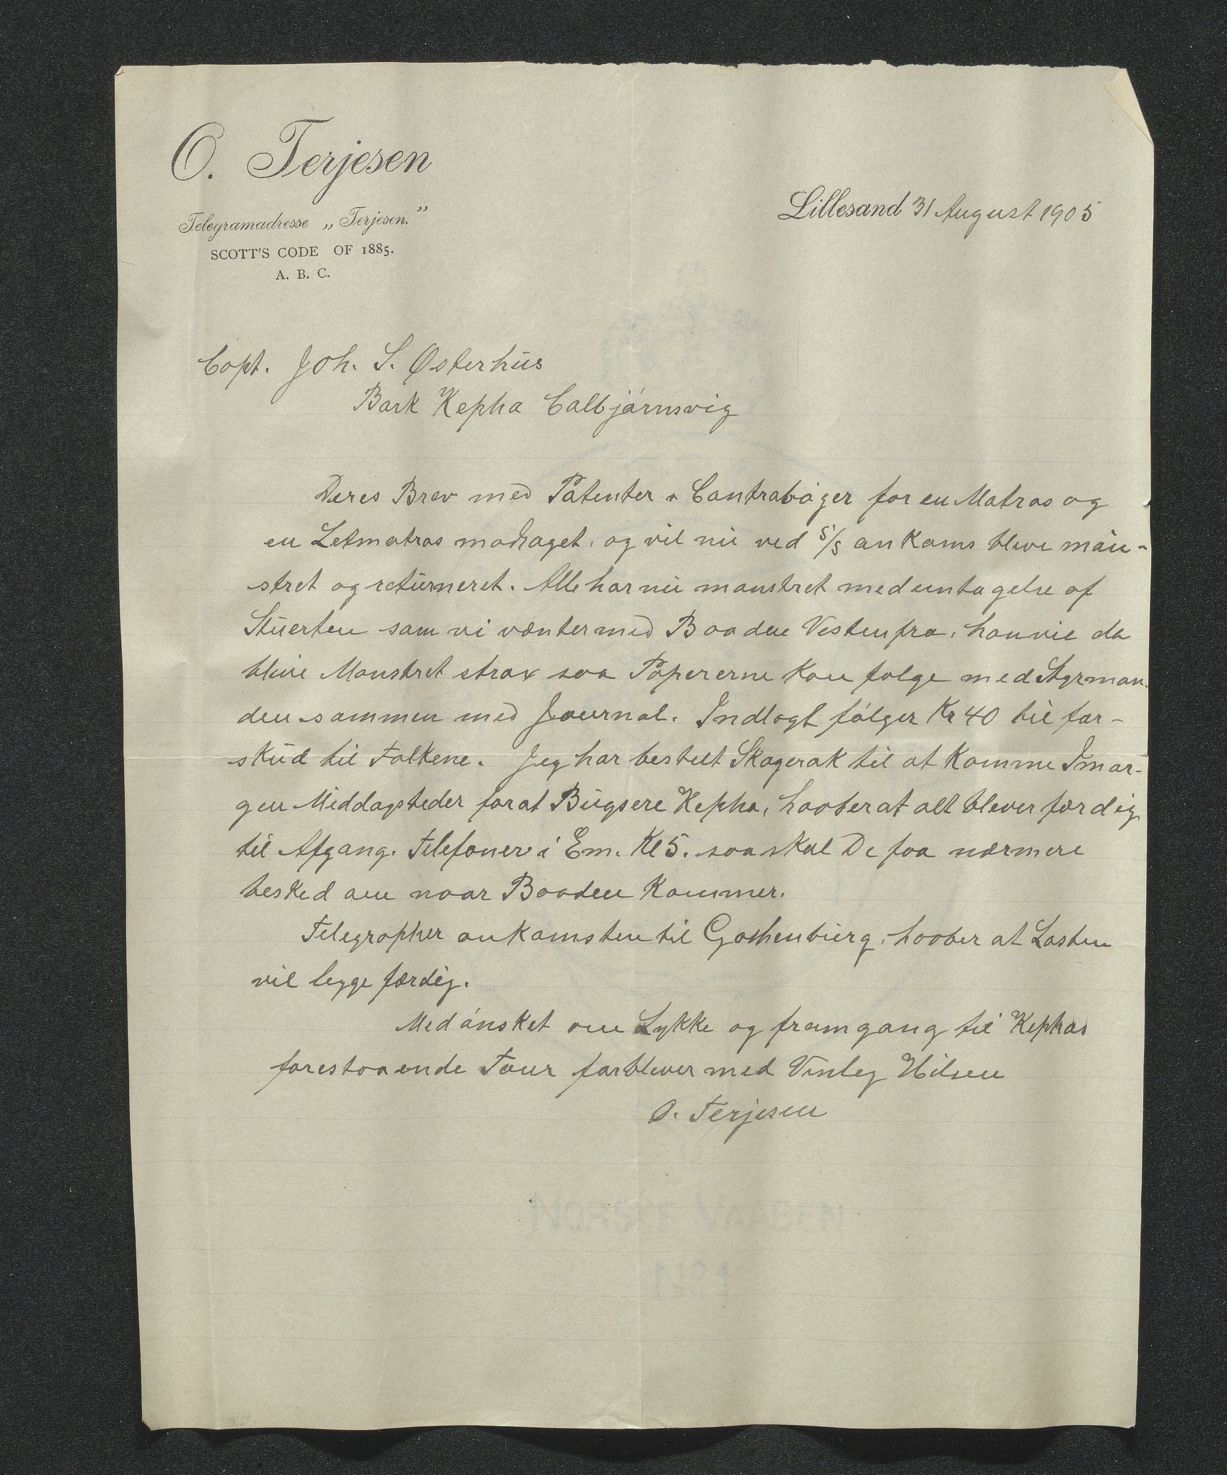 O. Terjesen
Telegramadresse „Terjesen.”
SCOTT'S CODE OF 1885.
A. B. C.
Lillesand 31 August 1905
Capt. Joh. S. Østerhus
Bark Kepha Calbjørnsvig
Deres Brev med Patenter & Contrabøger for en Matros og
en Letmatros modtaget, og vil nu ved S/S ankoms blive møn-
stret og returneret. Alle har nu mønstret med untagelse af
Stuerten som vi vænter med Baaden Vestenfra, han vil da
blive Mønstret strax saa Papererne kan følge med Styrman-
den sammen med Journal. Indlagt følger Kr 40 til for-
skud til Folkene. Jeg har bestelt Skagerak til at komme Imor-
gen Middagsteder forat Bugsere Kepha, haaber at alt blever færdig
til Afgang. Telefoner i Em. Kl 5. saa skal De faa nærmere
besked om naar Baaden Kommer.
Telegropher ankomsten til Gothenburg, haaber at Lasten
vil legge færdig.
Med ønsket om Lykke og framgang til Kephas
forestaaende Tour forblever med Venlig Hilsen
O. Terjesen